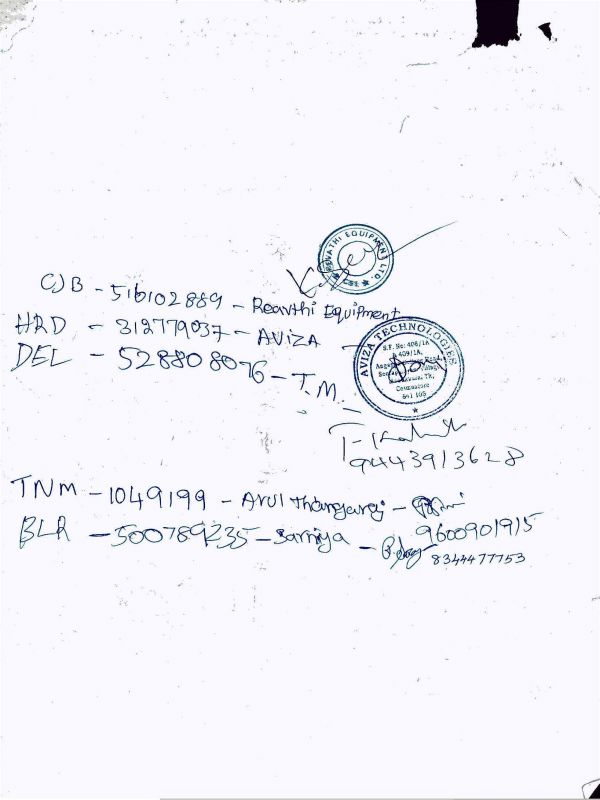 REVATHI EQUIPMENT LTD.
CBE
CJB - 516102889 - Reavthi Equipment
HRD - 312779037 - AVIZA
AVIZA TECHNOLOGIES
S.F. No: 406/1A
& 409/1A,
Coimbatore
641 105
DEL - 528808076 - T.M.
9443913628
TNM - 1049199 - Arul thangaraj -
9600901915
BLR - 500789235 - Sarniya -
8344477753